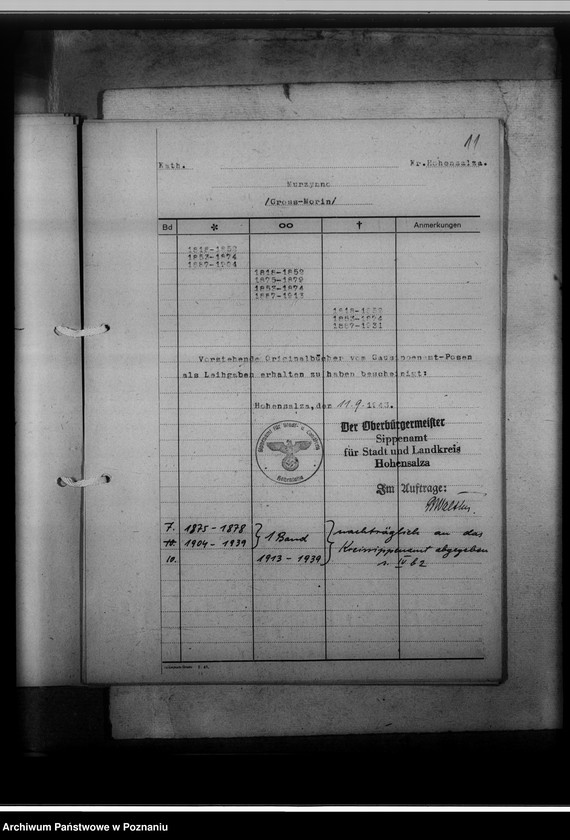 11
Kath.
Kr.Hohensalza.
Murzynno
/Gross-Morin/
Bd * ∞ † Anmerkungen
1818-1852
1853-1874
1887-1904
1818-1852
1875-1879
1853-1874
1887-1913
1853-1874
1887-1931
Vorstehende Originalbücher vom Gausippenamt-Posen
als Leihgraben erhalten zu haben bescheinigt:
Hohensalza,den 11.9.1943.
Der Oberbürgermeister
Sippenamt
für Stadt und Landkreis
Hohensalza
Im Auftrage:
7. 1875-1878
10. 1904-1939 } 1 Band
10. 1913-1939
nachträglich an das
Kreissippenamt abgegeben
s. IV b2
Archiwum Państwowe w Poznaniu